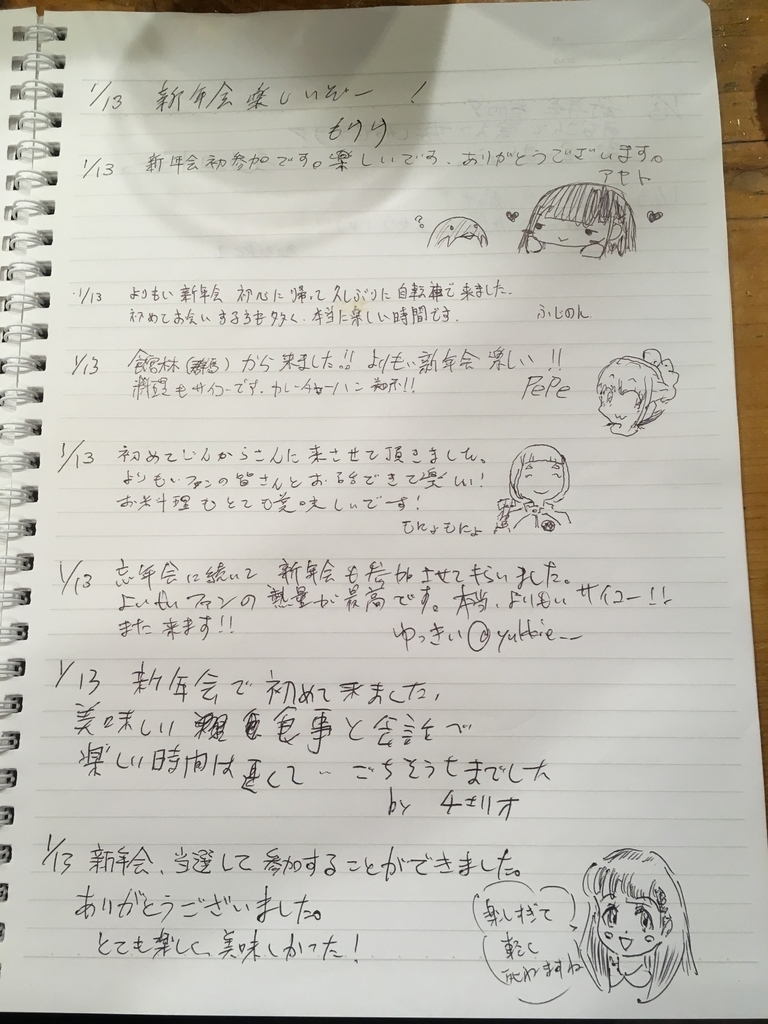 1/13 新年会楽しいぞー!
もけけ
1/13 新年会初参加です。楽しいです、ありがとうございます。
アセト
?
1/13 よりもい新年会 初心に帰って久しぶりに自転車で来ました。
初めてお会いする方も多く、本当に楽しい時間です。 ふじのん
1/13 館林(群馬)から来ました!! よりもい新年会 楽しい!!
料理もサイコーです。カレーチャーハン 最高!!
PePe
1/13 初めてじんからさんに来させて頂きました。
よりもいファンの皆さんとお話できて楽しい!
お料理もとても美味しいです!
もにょもにょ
1/13 忘年会に続いて 新年会も参加させてもらいました。
よりもいファンの熱量が最高です。本当、よりもいサイコー!!
また来ます!! ゆっきぃ@yukkie__
1/13 新年会で初めて来ました。
美味しい食事と会話で
楽しい時間は 速くて… ごちそうさまでした
by チェリオ
1/13 新年会、当選して参加することができました。
ありがとうございました。
とても楽しく、美味しかった!
楽しすぎて
軽く
死ねますね